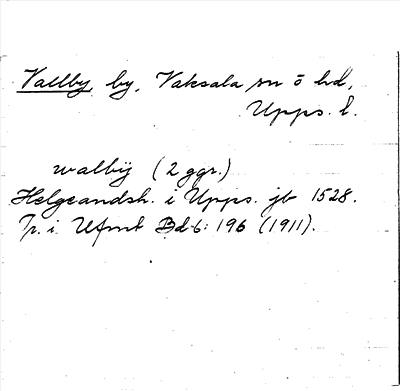 Vallby by, Vaksala sn o hd,
Upps. l.
walbij (2 ggr.)
Helgeandsh. i Upps. jb 1528.
Tr. i Ufmt Bd 6: 196 (1911).